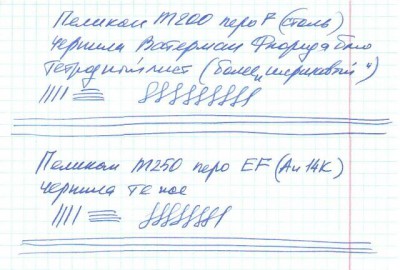 Пеликан М200 перо F (сталь)
чернила Ватерман Флорида блю
тетрадный лист (более „шариковый“)
Пеликан М250 перо EF (Au 14К)
чернила те же